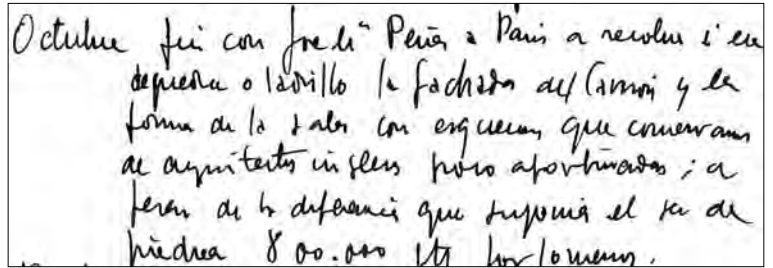 Octubre fui con José Mª Peña a París a resolver si era
de piedra o ladrillo la fachada del Camón y la
forma de la sala con esquemas que conservamos
de arquitectos ingleses poco afortunados; a
pesar de la diferencia que suponía el ser de
piedra 800.000 pts por lo menos.